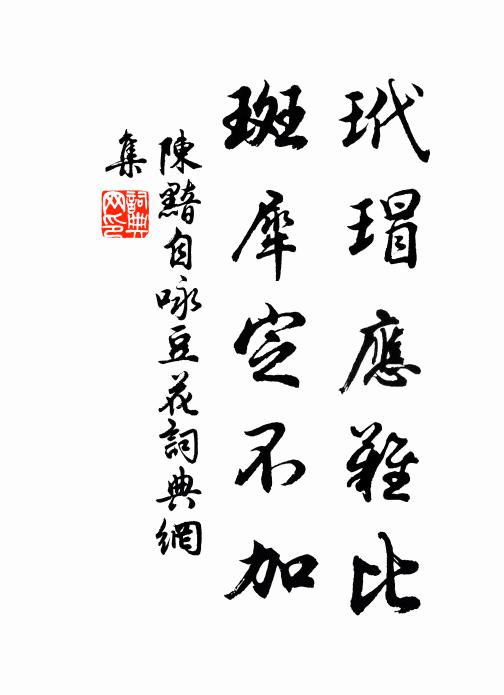 玳瑁應難比
斑犀定不加
陳黯自咏豆花詞典網
集
詞典
网印